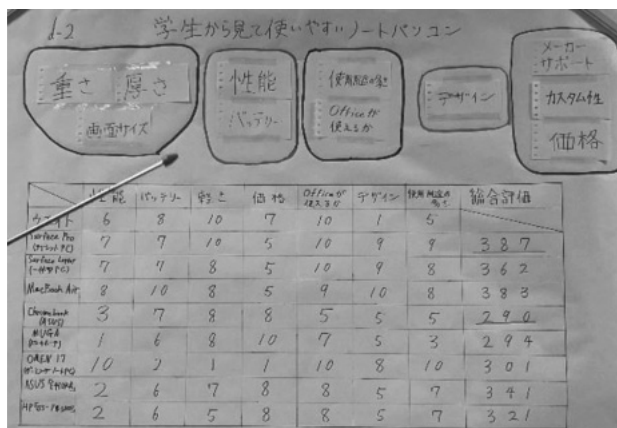 d-2 学生から見て使いやすいノートパソコン
重さ 厚さ
画面サイズ
性能
バッテリー
使用用途の多さ
Officeが
使えるか
デザイン
メーカー
サポート
カスタム性
価格
性能 バッテリー 軽さ 価格 Officeが使えるか デザイン 使用用途の多さ 総合評価
ウエイト 6 8 10 7 10 1 5
Surface Pro 7 7 10 5 10 9 9 387
Surface Laptop 7 7 8 5 10 9 8 362
MacBook Air 8 10 8 5 9 10 8 383
Chromebook (ASUS) 3 7 9 8 5 5 5 290
1 6 8 10 7 5 3 294
OMEN 17 10 2 1 1 10 8 10 301
ASUS 2 6 7 8 8 5 7 341
HP 2 6 5 8 8 5 7 321